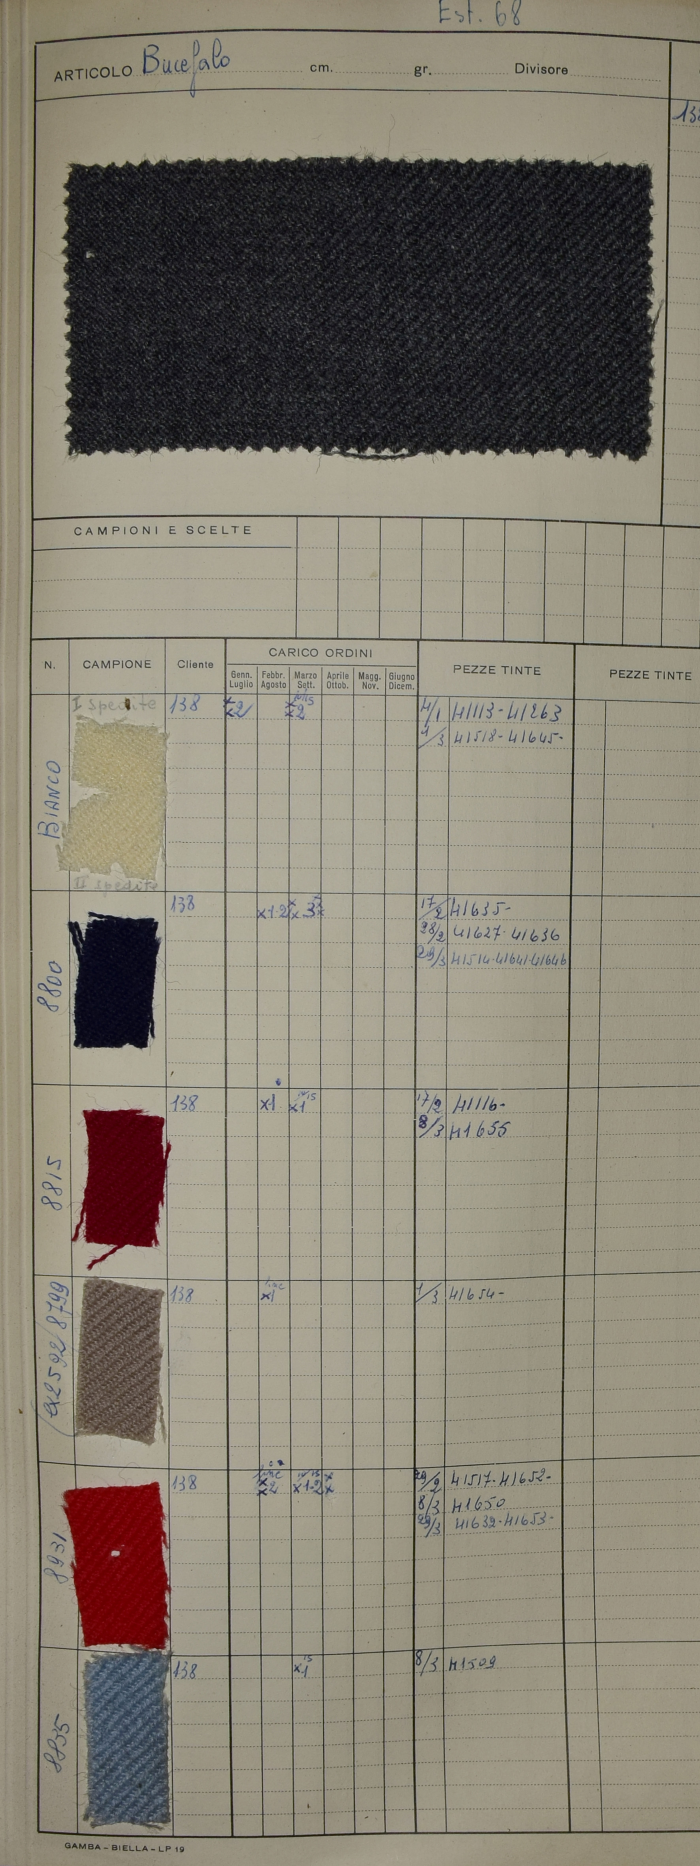 Est. 68
ARTICOLO Bucefalo cm. gr. Divisore
CAMPIONI E SCELTE
N. CAMPIONE Cliente CARICO ORDINI PEZZE TINTE PEZZE TINTE
Genn. Luglio Febbr. Agosto Marzo Sett. Aprile Ottob. Magg. Nov. Giugno Dicem.
BIANCO I spedite 138 x2 x2 4/1 41113-41263
4/3 41518-41645-
II spedite
8800 138 x1-2 x3 17/2 41635-
28/2 41627-41636
29/3 41514-41641-41646
8815 138 x1 x1 17/2 41116-
8/3 41655
ex2592/8799 138 x1 1/3 41654-
8931 138 x2 x1-2 29/2 41517-41652-
8/3 41650
29/3 41632-41653-
8835 138 x1 8/3 41509
GAMBA - BIELLA - LP 19